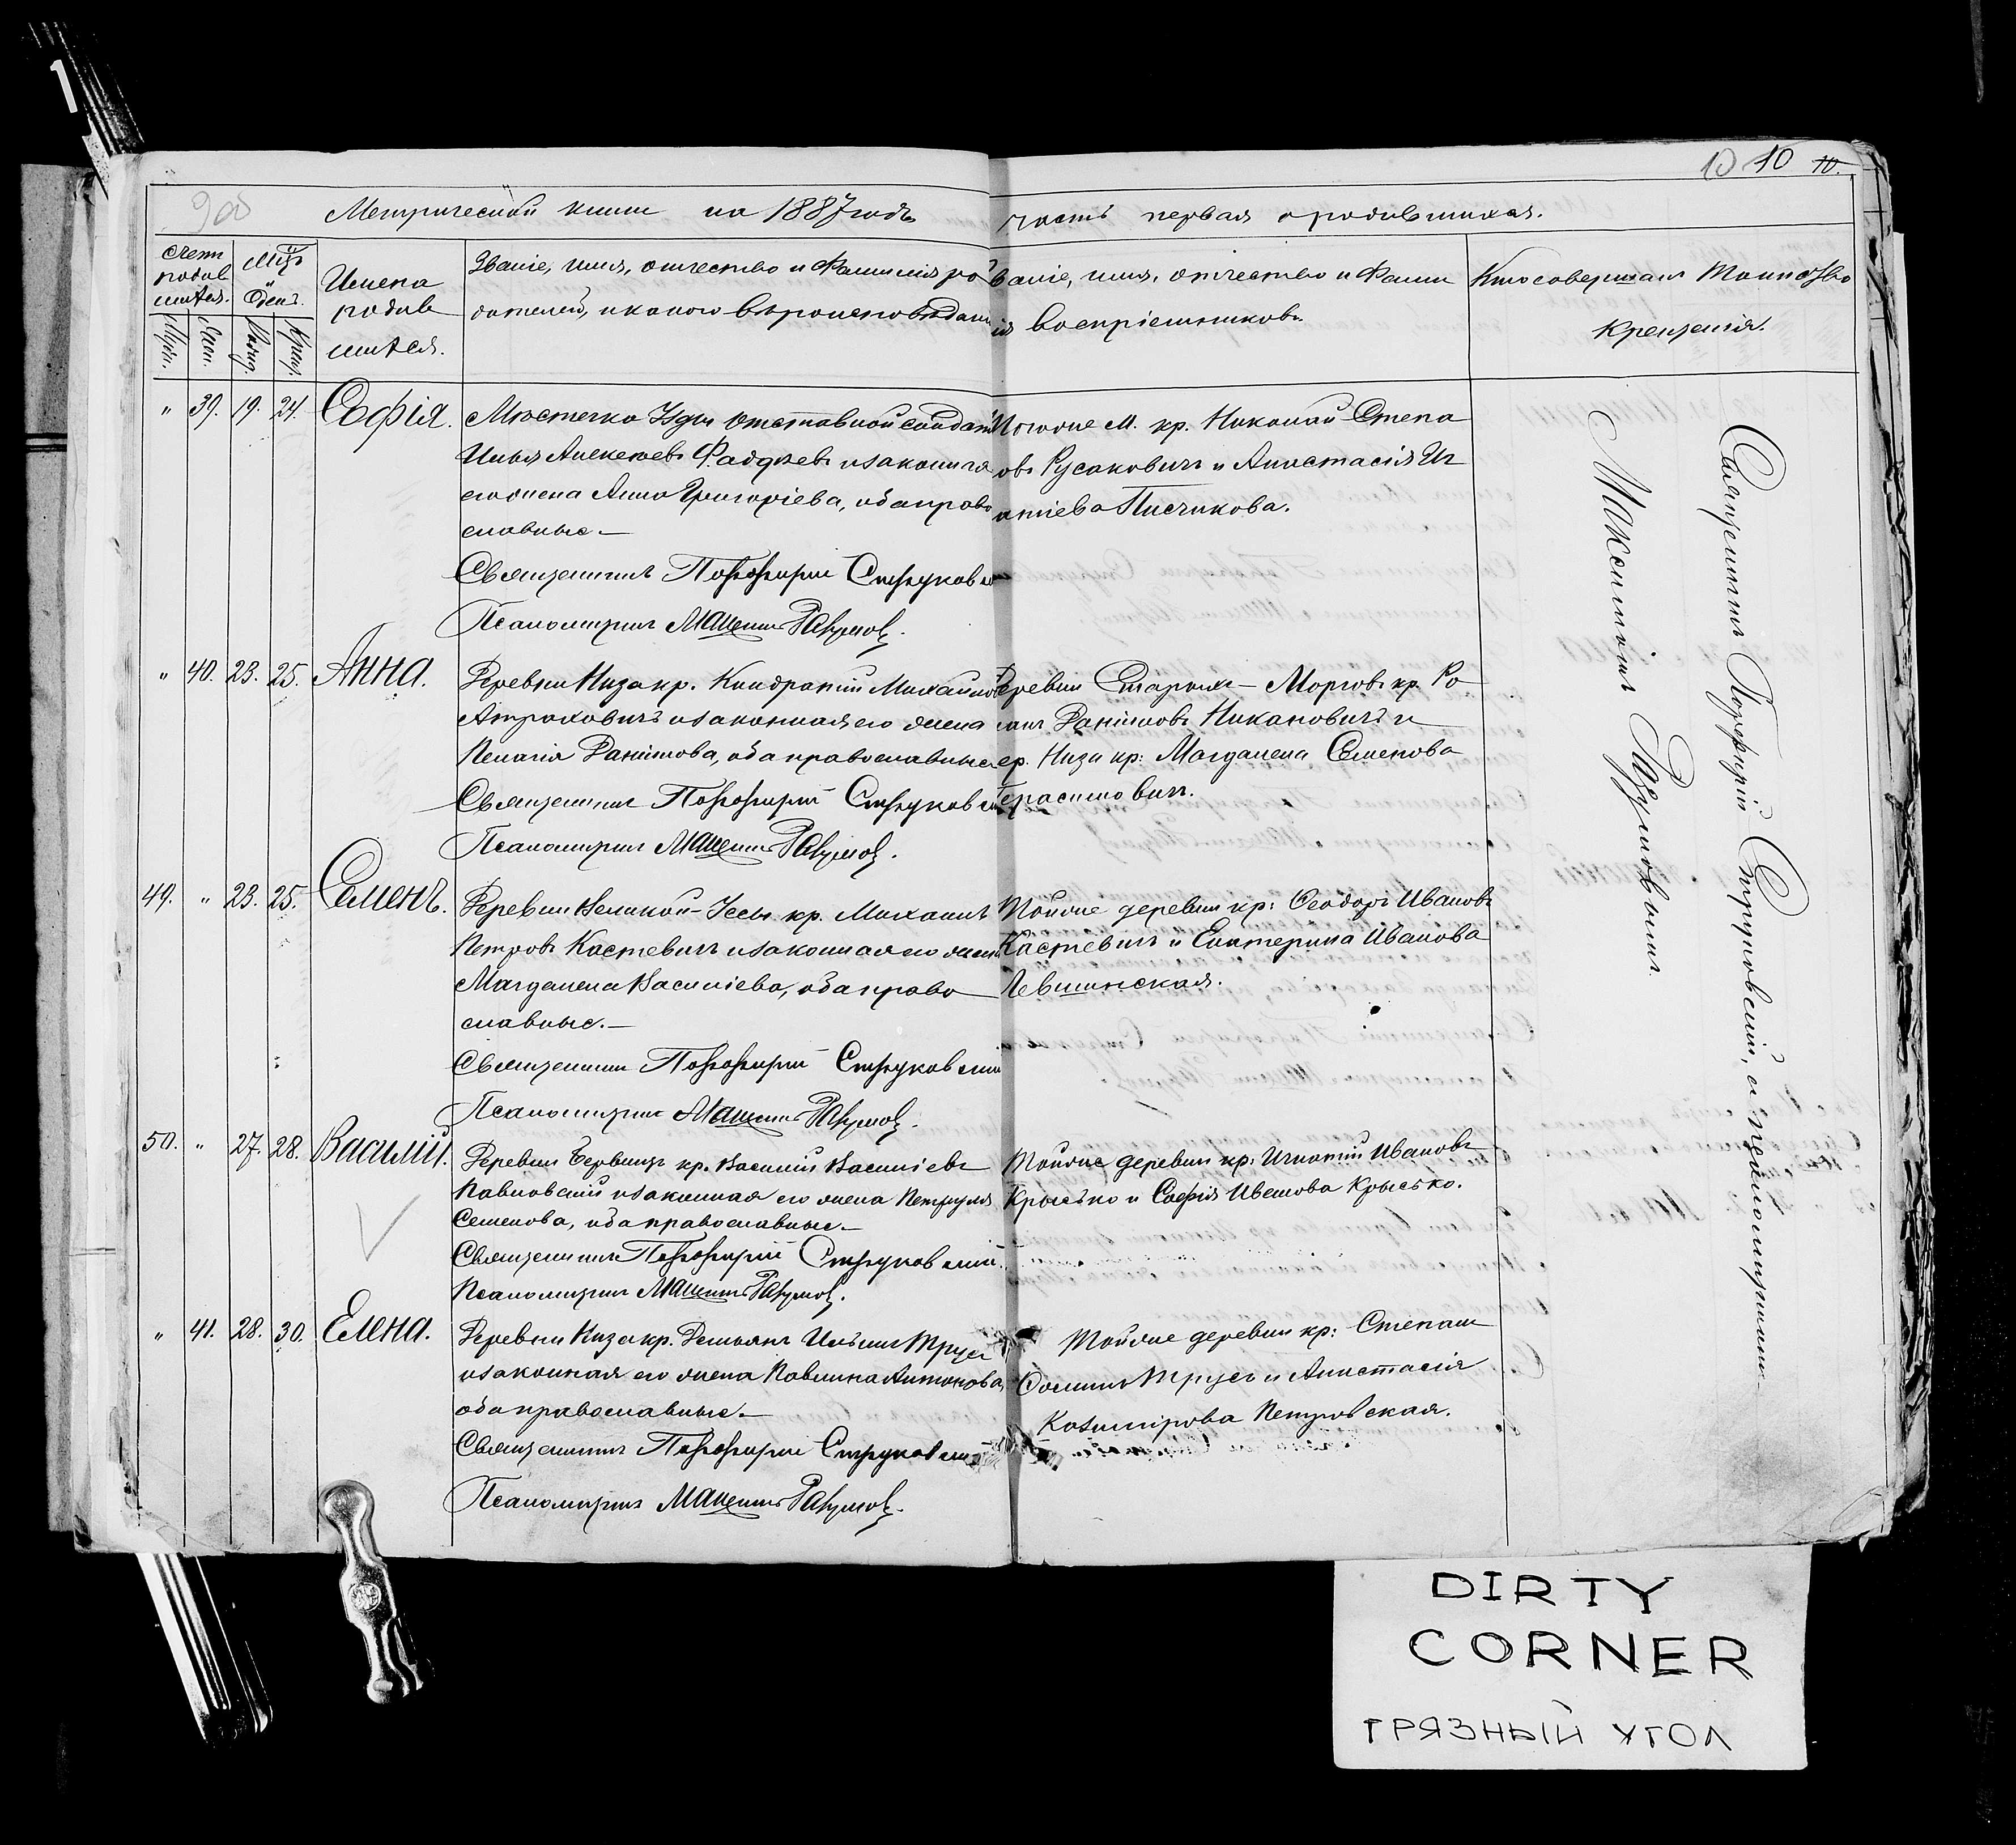 1
10 10 10.
Метрической книги на 1887 годъ часть первая о родившихся.
Счетъ родившихся.
Мужс. Женс.
Мцъ и день.
Рожд. Крещ.
Имена родившихся.
Званіе, имя, отчество и фамилія ро
дителей, и какого вѣроисповѣдані
ваніе, имя, отчество и Фами
ія воспріемниковъ.
Кто совершалъ Таинство
крещенія.
" 39. 19. 24. Софія.
Мѣстечка Узды отставной солдатъ
Илья Алексѣевъ Фаддѣевъ и законная
его жена Анна Григоріева, оба право
славные.—
Священникъ Порфирій Струковскій
Псаломщикъ Максимъ Разумовъ.
Тогоже М. кр. Николай Степа
овъ Русаковичъ и Анастасія Иг
атіева Писчикова.
" 40. 23. 25. Анна.
Деревни Низа кр. Кондратій Михайловъ
Атрахович и законная его жена
Пелагія Даніилова, оба православные
Священникъ Порфирій Струковскій
Псаломщикъ Максимъ Разумовъ.
Деревни Старыхъ-Морговъ кр. Ро
манъ Даніиловъ Никановичъ и
ер. Низа кр: Магдалена Семенова
Герасимовичъ.
49. " 23. 25. Семенъ.
Деревни Великой-Уссы кр. Михаилъ
Петровъ Костевичъ и законная его жена
Магдалена Василіева, оба право
славные.—
Священникъ Порфирій Струковскій
Псаломщикъ Максимъ Разумовъ.
Тойже деревни кр: Ѳеодоръ Ивановъ
Костевичъ и Екатерина Иванова
Левшинская.
50. " 27. 28. Василій.
Деревни кр. Василій Василіевъ
Павловскій и законная его жена Петрунеля
Семенова, оба православные.—
Священникъ Порфирій Струковскій.
Псаломщикъ Максимъ Разумовъ.
Тойже деревни кр: Игнатій Ивановъ
Крысько и Софія Иванова Крысько.
" 41. 28. 30. Елена.
Деревни Низа кр. Демьянъ Ильинъ Трусъ
и законная его жена Павлина Антонова,
оба православные.—
Священникъ Порфирій Струковскій
Псаломщикъ Максимъ Разумовъ.
Тойже деревни кр: Степанъ
Трусъ и Анастасія
Казимірова Петровская.
Священникъ Порфирій Струковскій, съ псаломщикомъ
Максимомъ Разумовымъ.
DIRTY
CORNER
ГРЯЗНЫЙ УГОЛ